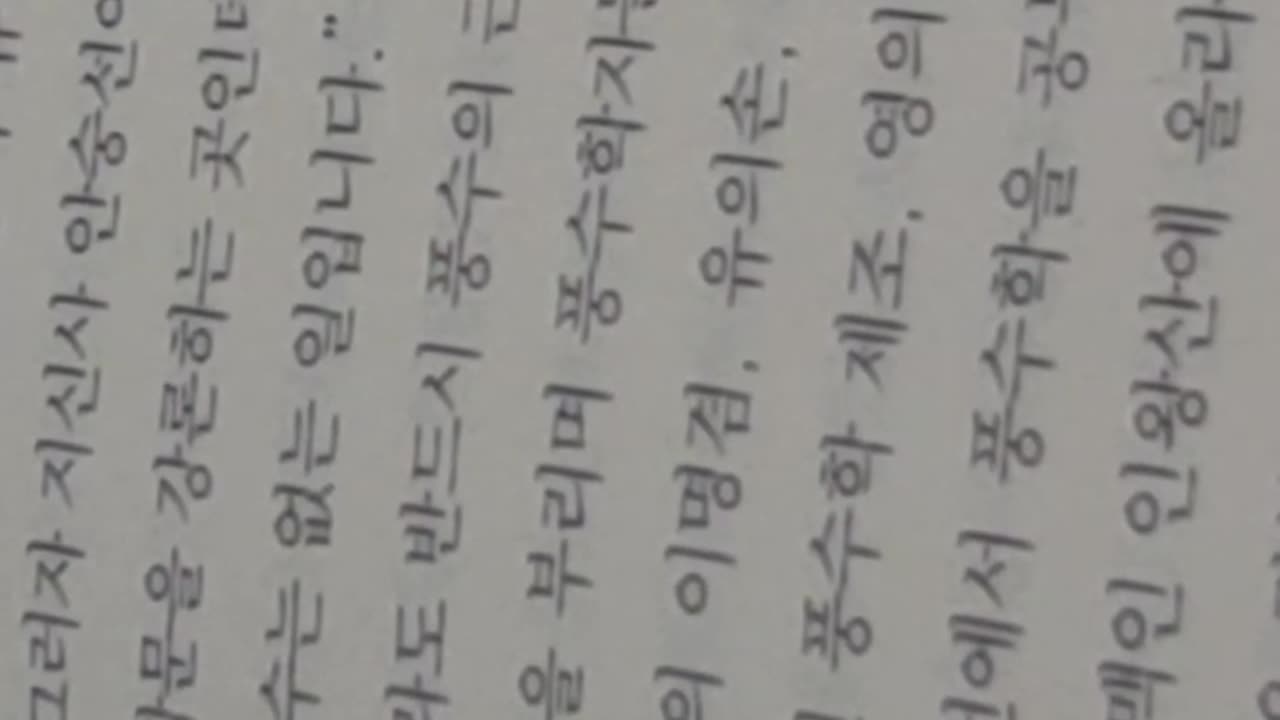 그러자 지신사 안숭선이
문을 강론하는 곳인데
수는 없는 일입니다."
라도 반드시 풍수의
을 부리며 풍수학자
의 이명겸, 유의손,
풍수학 제조, 영의
에서 풍수학을 공
맥인 인왕산에 올라